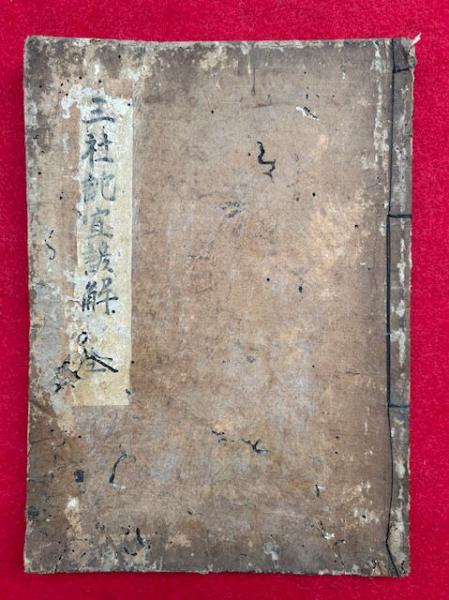 三社託宣諺解 全